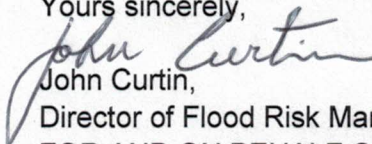 Yours sincerely,
John Curtin
John Curtin,
Director of Flood Risk